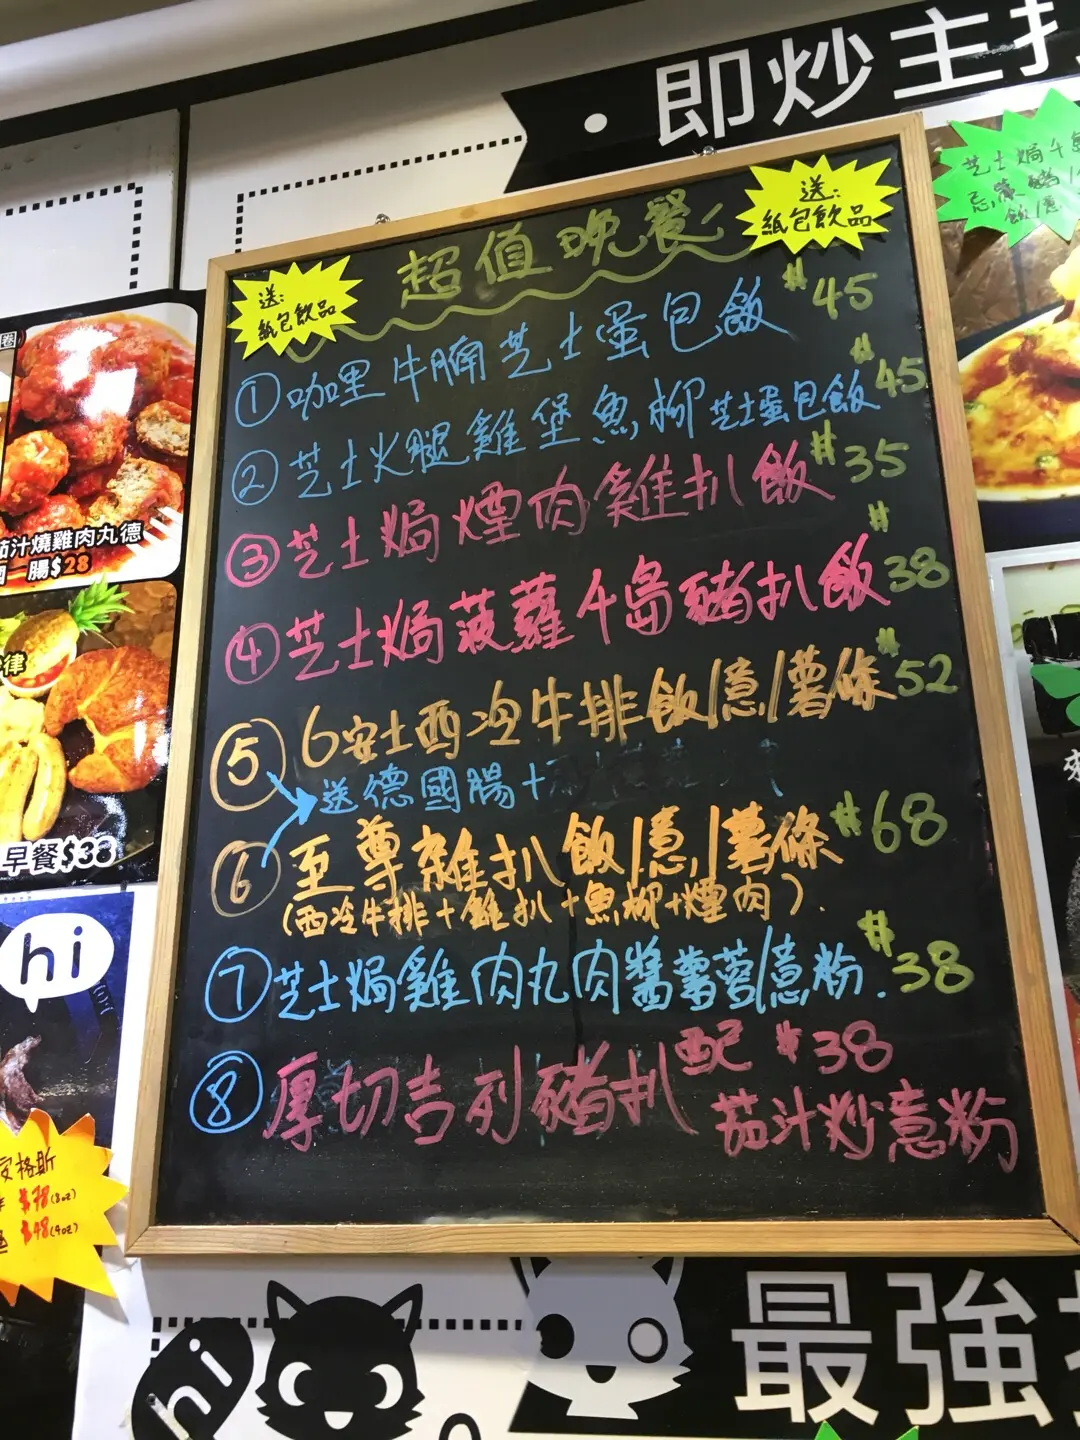 即炒主打
送:
紙包飲品
超值晚餐
送:
紙包飲品
① 咖喱牛腩芝士蛋包飯 $45
② 芝士火腿雞堡魚柳芝士蛋包飯 $45
③ 芝士焗煙肉雞扒飯 $35
④ 芝士焗菠蘿千島豬扒飯 $38
⑤ 6安士西冷牛排飯/意/薯條 $52
送德國腸+
⑥ 至尊雜扒飯/意/薯條 $68
(西冷牛排+雞扒+魚柳+煙肉).
⑦ 芝士焗雞肉丸肉醬薯蓉/意粉. $38
⑧ 厚切吉列豬扒配 $38
茄汁炒意粉
茄汁燒雞肉丸德
腸$28
早餐$38
hi
安格斯
$78(8oz)
$48(4oz)
hi
最強